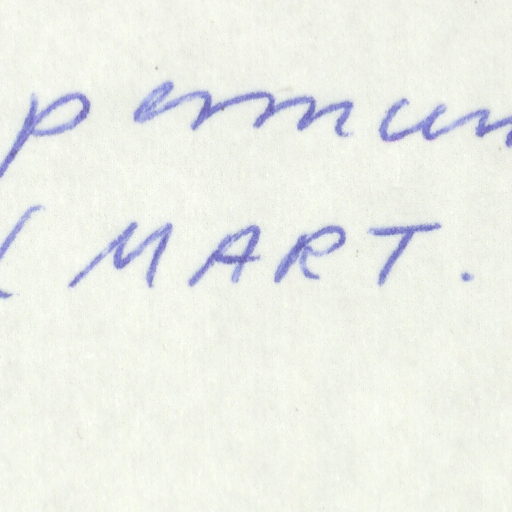 permum
( MART.